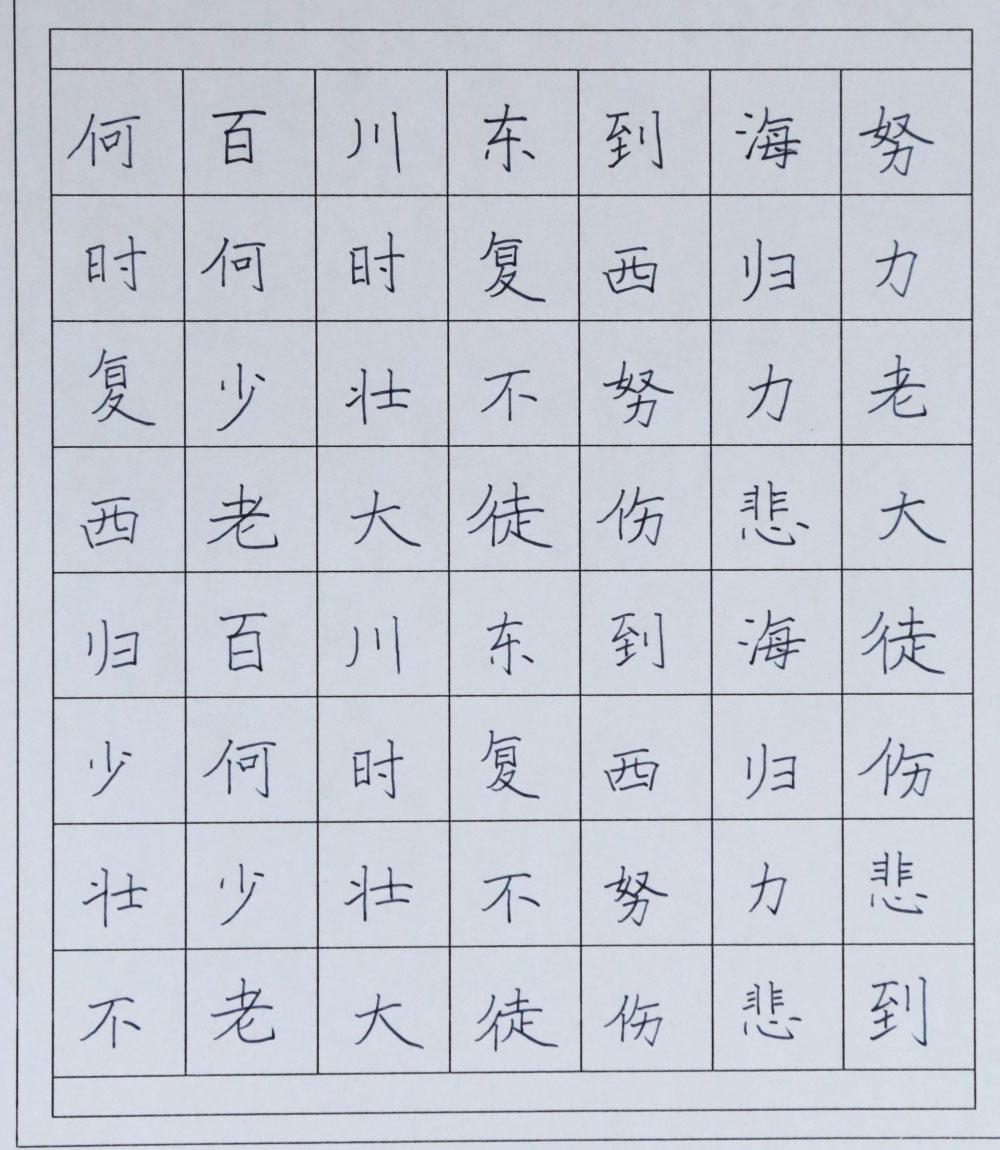 何百川东到海努
时何时复西归力
复少壮不努力老
西老大徒伤悲大
归百川东到海徒
少何时复西归伤
壮少壮不努力悲
不老大徒伤悲到